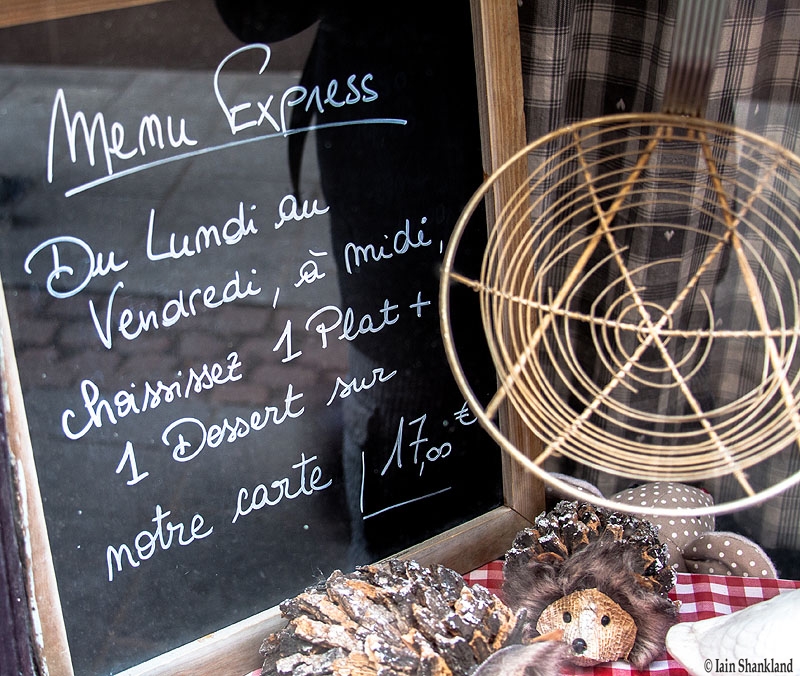 Menu Express
Du Lundi au
Vendredi, à midi,
choissisez 1 Plat +
1 Dessert sur
notre carte 17,00 €
© Iain Shankland